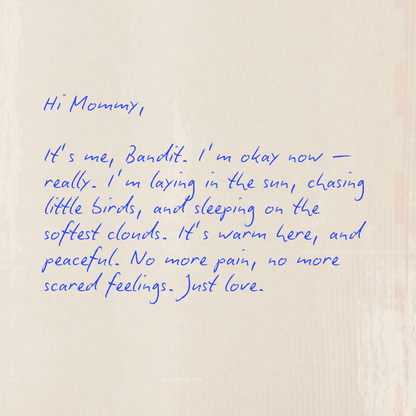 Hi Mommy,
It's me, Bandit. I'm okay now —
really. I'm laying in the sun, chasing
little birds, and sleeping on the
softest clouds. It's warm here, and
peaceful. No more pain, no more
scared feelings. Just love.